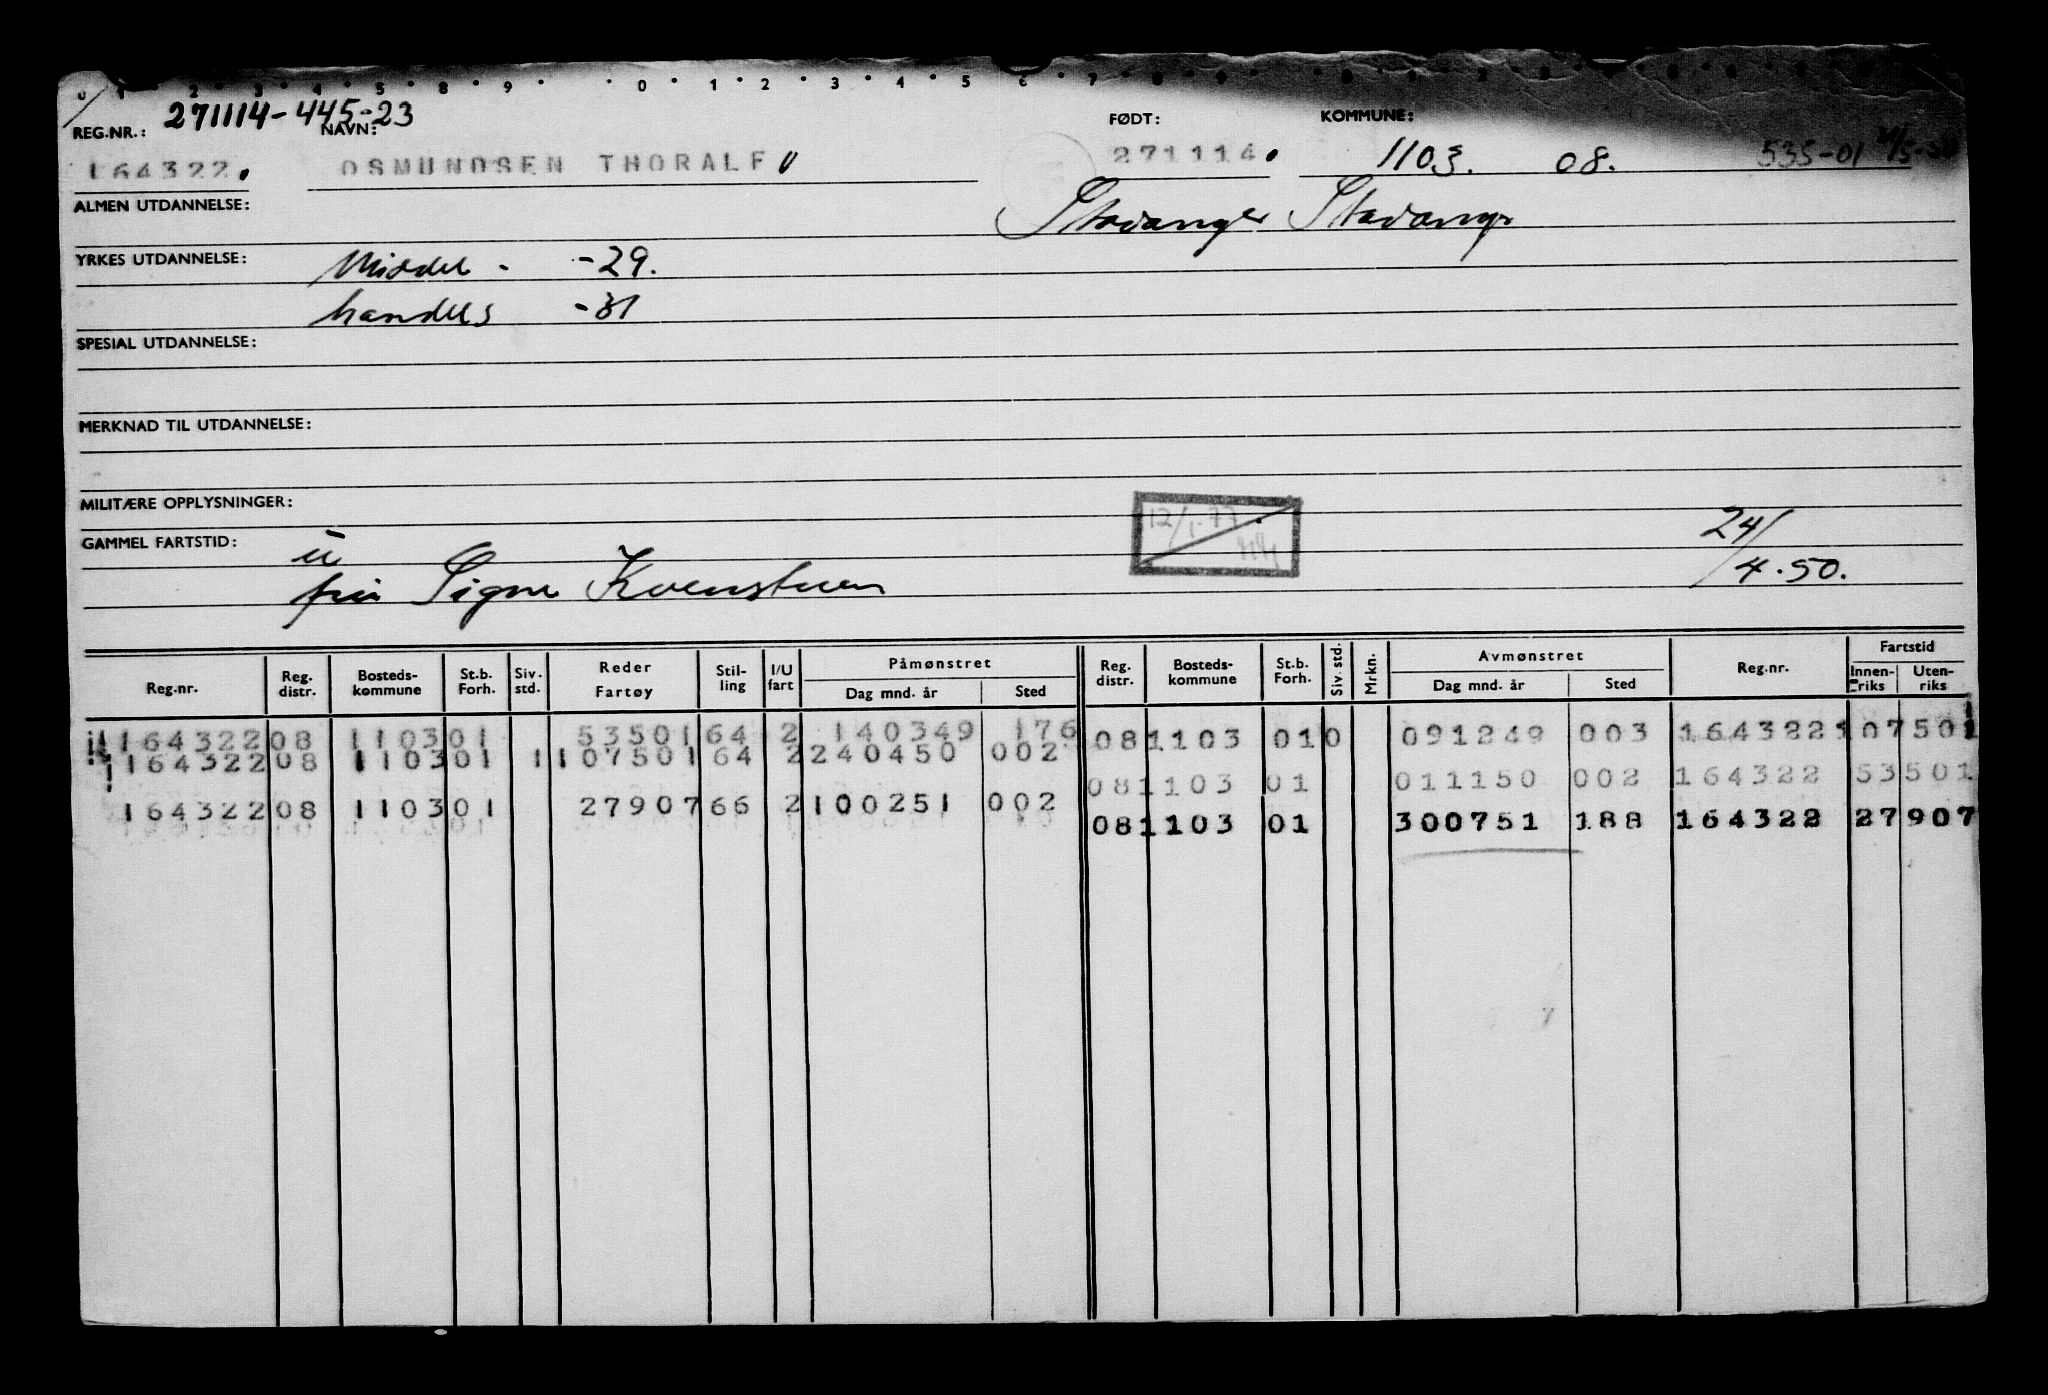 1 2 3 4 5 8 9 0 1 2 3 4 5 6 7 8 9
REG.NR.: 271114-445-23 NAVN: FØDT: KOMMUNE:
164322. OSMUNDSEN THORALF 271114. 1103. 08. 535-01
ALMEN UTDANNELSE: Stavanger Stavanger
YRKES UTDANNELSE: Middel - -29.
handels -31
SPESIAL UTDANNELSE:
MERKNAD TIL UTDANNELSE:
MILITÆRE OPPLYSNINGER: 12/1-77 24/
GAMMEL FARTSTID: 4.50.
Signe
Reg.nr. Reg. distr. Bosteds-kommune St.b. Forh. Siv. std. Reder Fartøy Stil-ling I/U fart Påmønstret Dag mnd. år Sted Reg. distr. Bosteds-kommune St.b. Forh. Siv. std. Mrkn. Avmønstret Dag mnd. år Sted Reg.nr. Fartstid Innen-riks Uten-riks
164322 08 1103 01 53501 64 2 140349 176 08 1103 01 0 091249 003 164322 107501
164322 08 1103 01 1 107501 64 2 240450 002 08 1103 01 011150 002 164322 53501
164322 08 1103 01 27907 66 2 100251 002 08 1103 01 300751 188 164322 27907